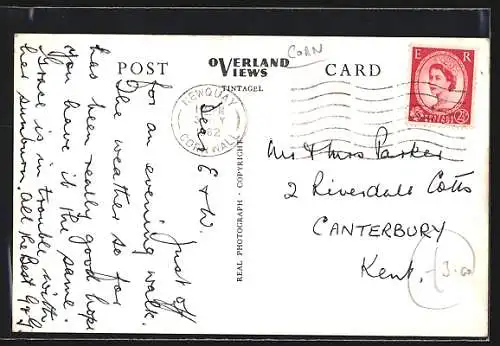 POST
OVERLAND
VIEWS
TINTAGEL
CARD
CORN
E R
NEWQUAY
62
CORNWALL
REAL PHOTOGRAPH · COPYRIGHT
Dear E & W.
Just off
for an evening walk.
The weather so far
has been really good hope
you have it the same.
Grace is in trouble with
her sunburn. All the Best G & G
Mr & Mrs Parker
2 Riverdale Cotts
CANTERBURY
Kent.